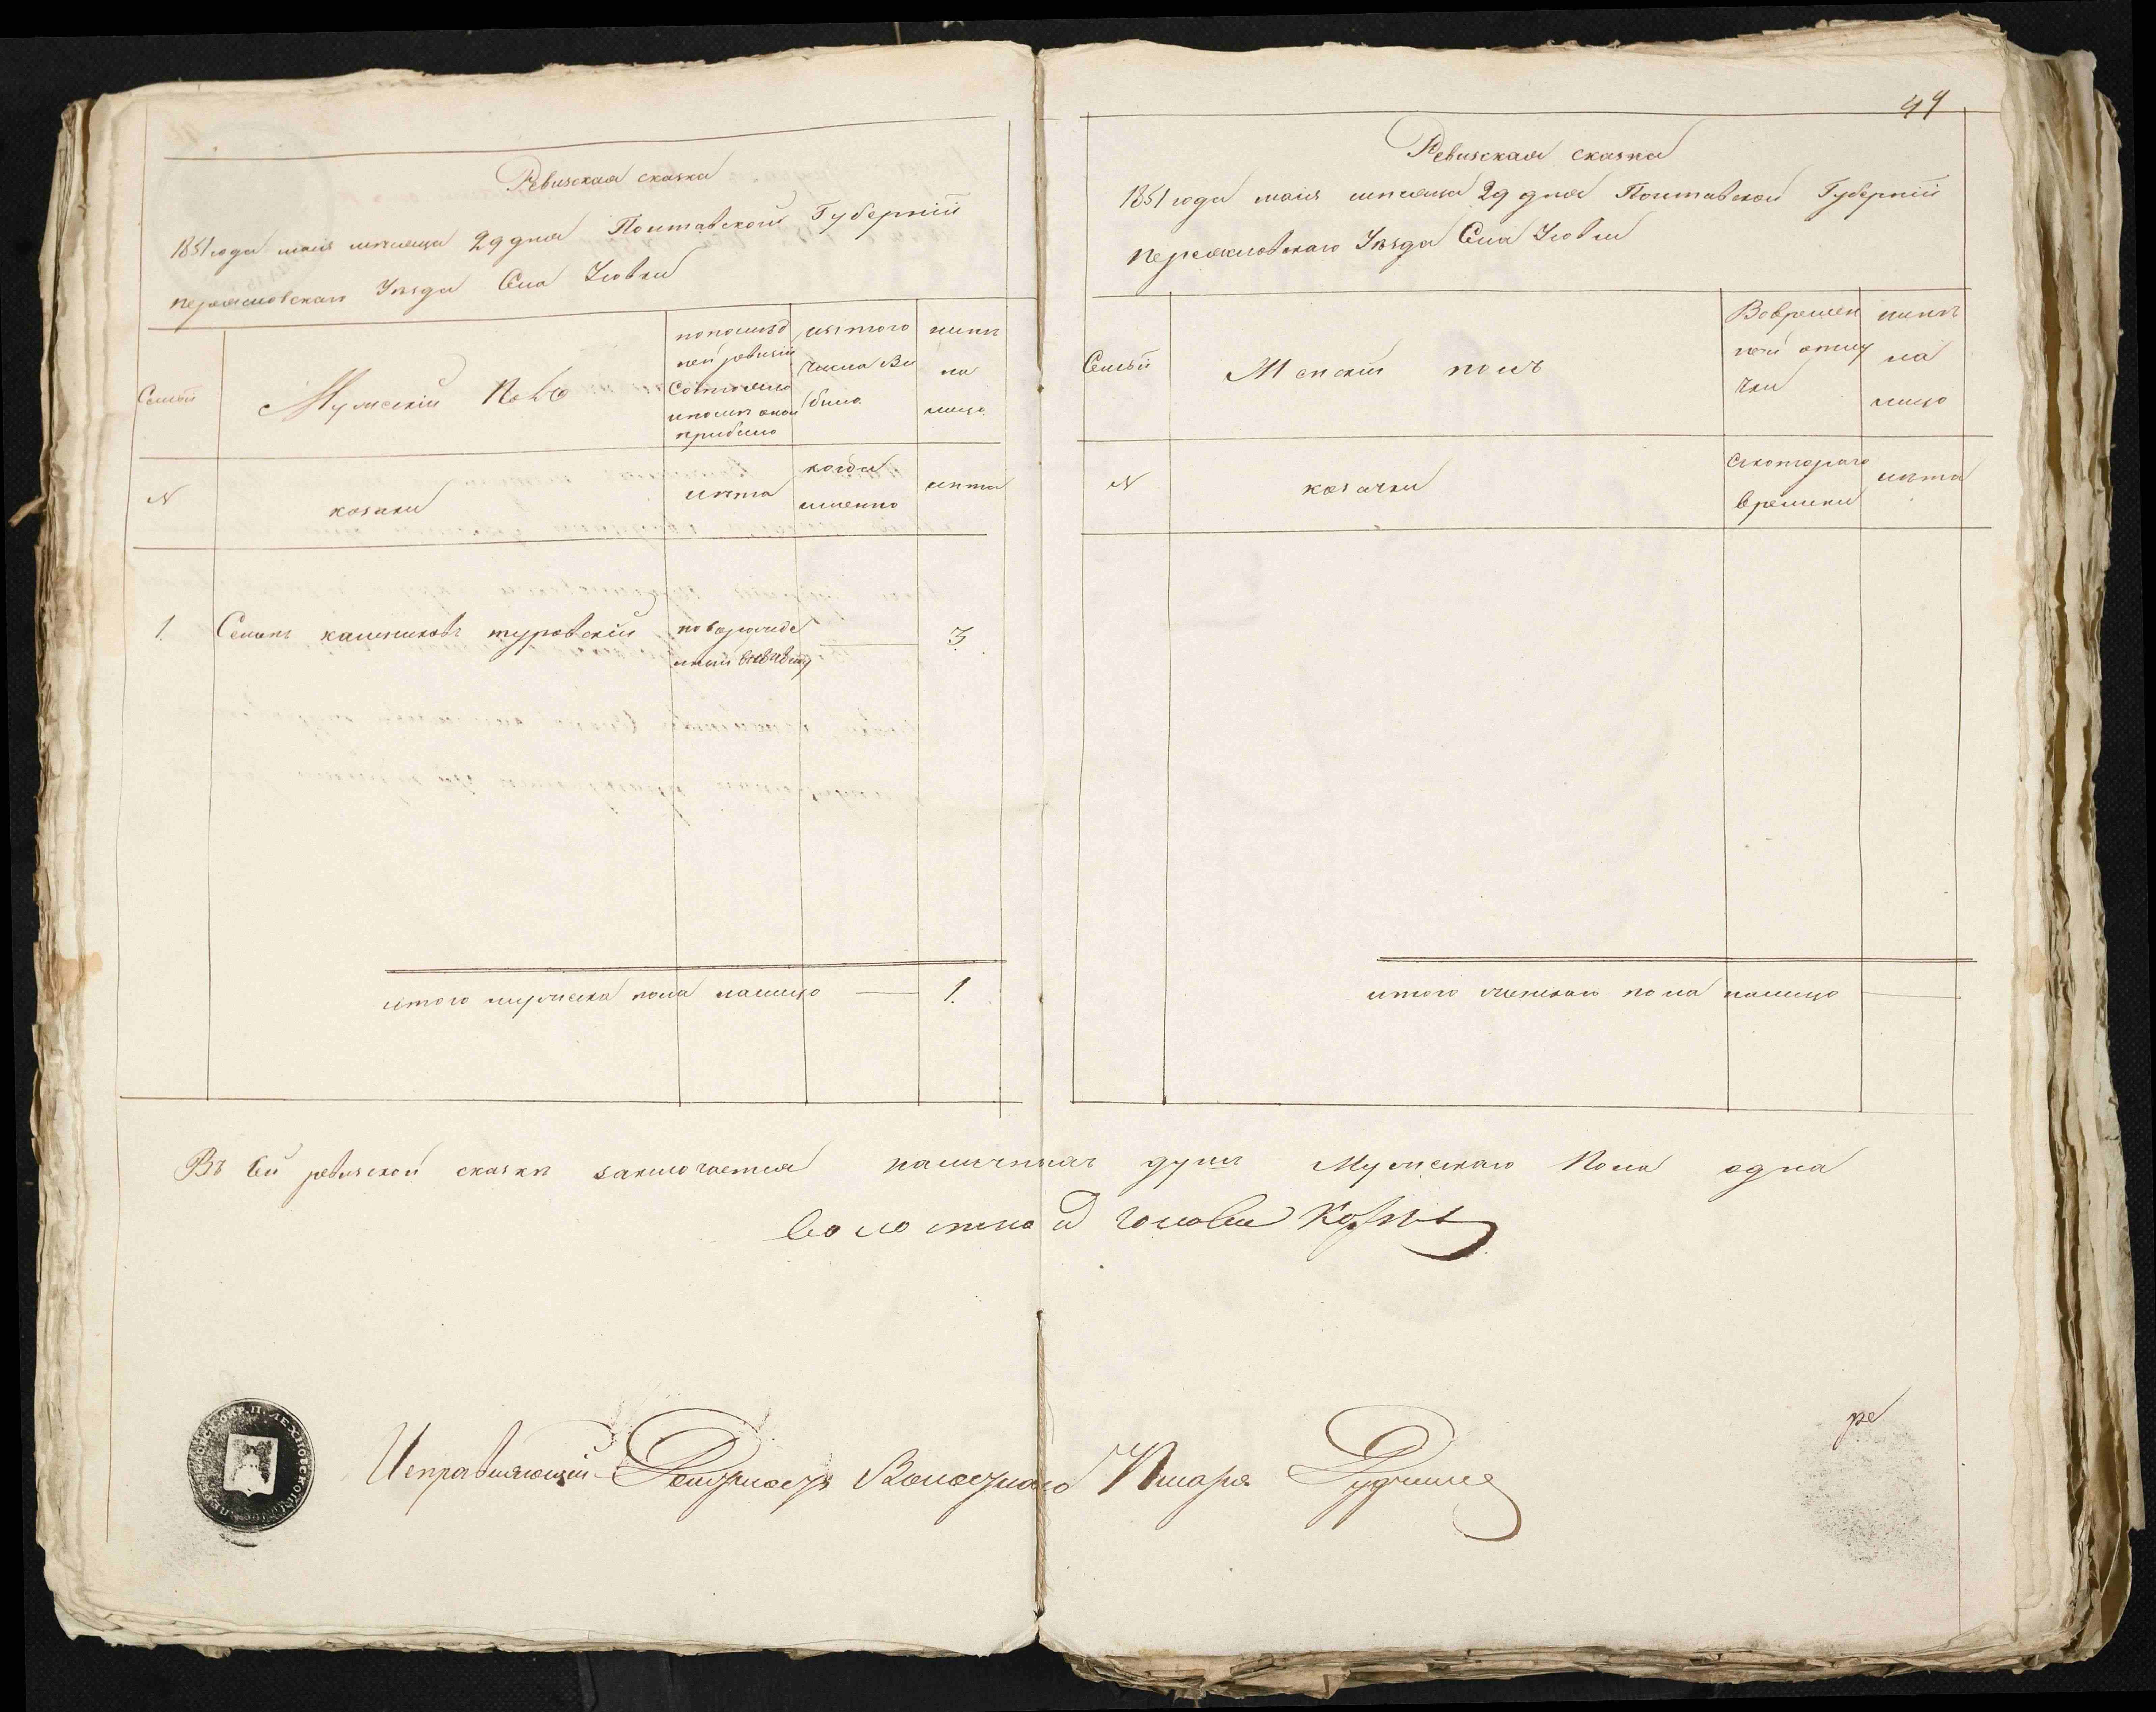 Ревизская сказка
1851 года маія мѣсяца 29 дня Полтавской Губерніи
переясловскаго Уѣзда Села
Семьи
Мужескій Полъ
по послед
ней ревизіи
Состояло
и после оной
прибыло
изъ того
числа вы
было
нынѣ
на
лицо
N
козаки
лѣта
когда
именно
лѣта
1.
Семенъ калениковъ туровскій
3
итого мужеска пола налицо
1.
49
Ревизская сказка
1851 года маія мѣсяца 29 дня Полтавской Губерніи
переясловскаго Уѣзда Села
Семьи
Женскій полъ
Во времен
ной отлу
чки
нынѣ
на
лицо
N
козачки
Съ котораго
времени
лѣта
итого женскаго пола налицо
Въ сей ревизской сказкѣ заключается наличныхъ душъ Мужескаго Пола одна
волостной голова
Исправляющій Должность Волостнаго Писаря
ре